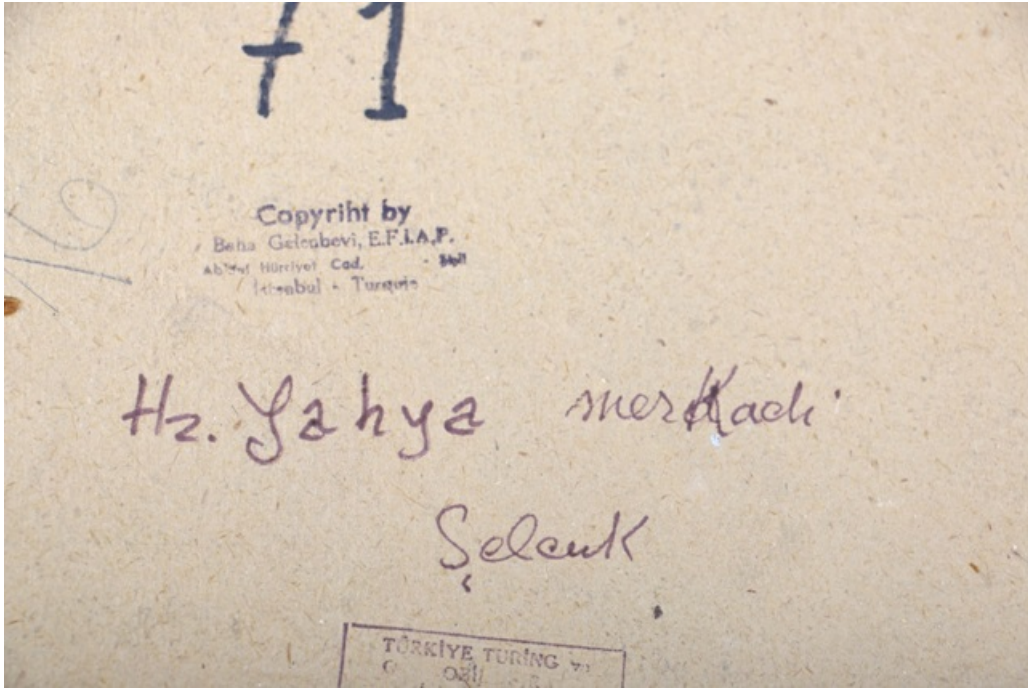 71
16
Copyriht by
Baha Gelenbevi, E.F.İ.A.P.
Abidei Hürriyet Cad.
İstanbul - Turquie
Hz. Yahya merkadi
Şelcuk
TÜRKİYE TURING